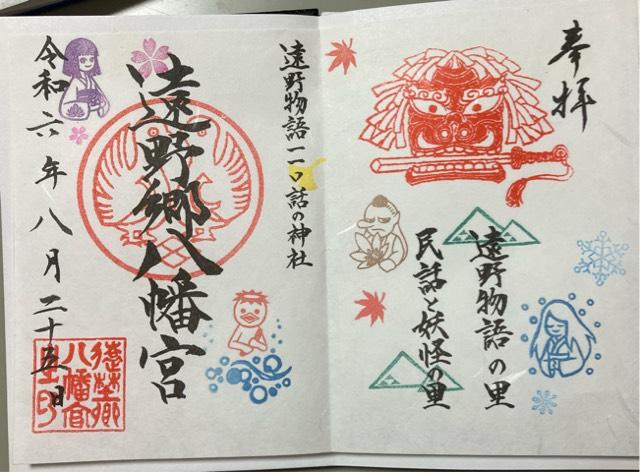 奉拝
遠野物語の里
民話と妖怪の里
遠野物語一一〇話の神社
遠野郷八幡宮
令和六年八月二十五日